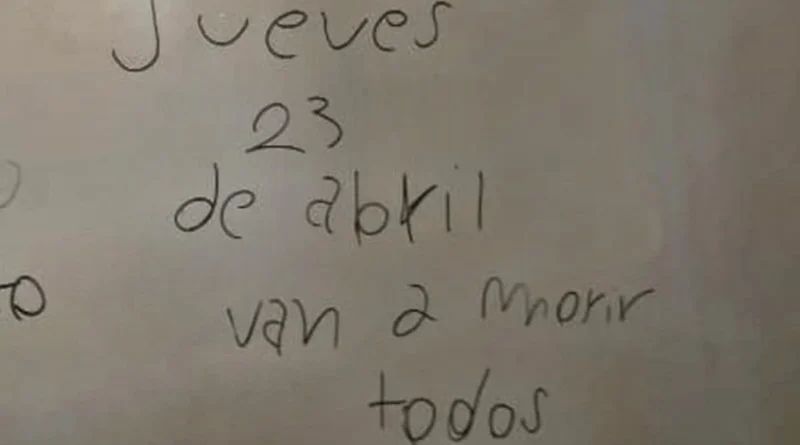 Jueves
23
de abril
van a morir
todos